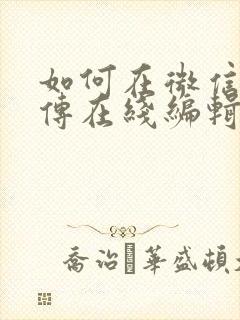 如何在微信
傳在綫編輯
喬治華盛頓